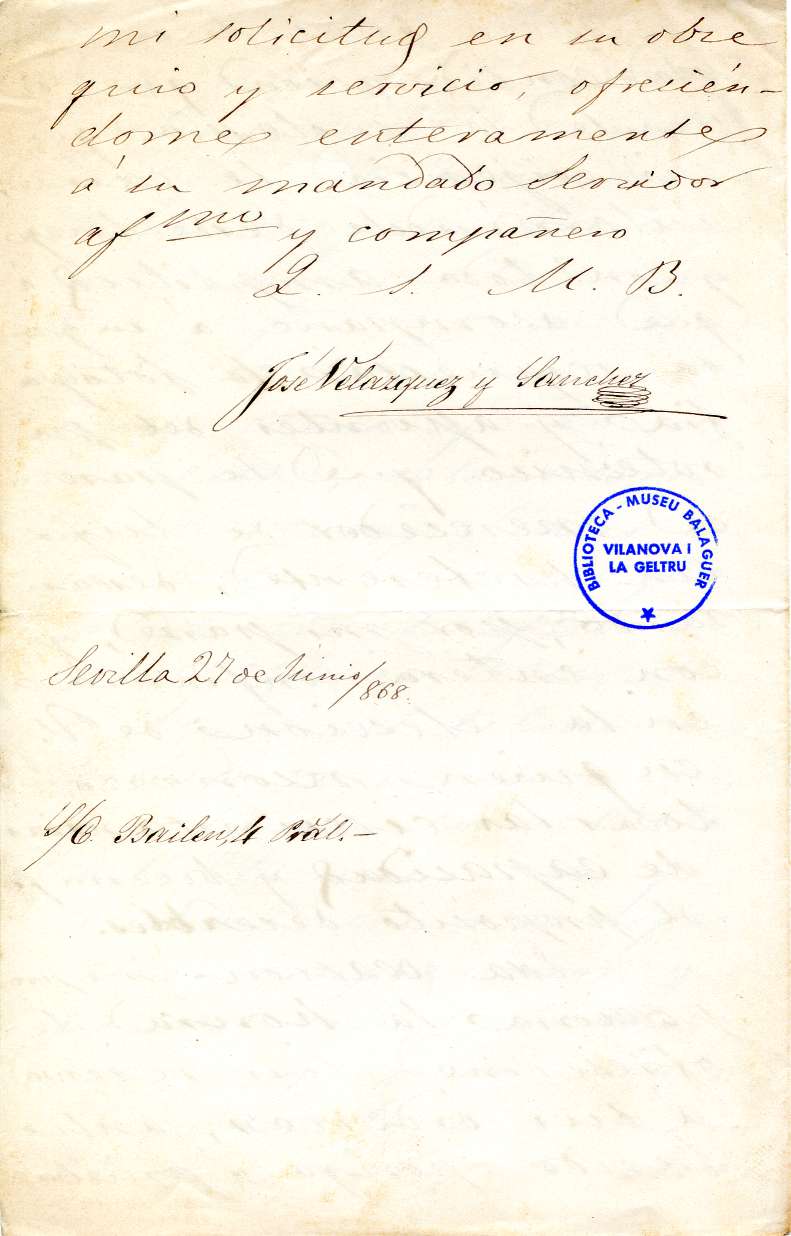 mi solicitud en su obse
quio y servicio, ofrecién-
dome enteramente
á su mandado Servidor
af mo y compañero
Q. S. M. B.
José Velazquez y Sanchez
BIBLIOTECA - MUSEU BALAGUER
VILANOVA I
LA GELTRU
Sevilla 27 de Junio/868.
S/C. Bailen, 4 Pral. -